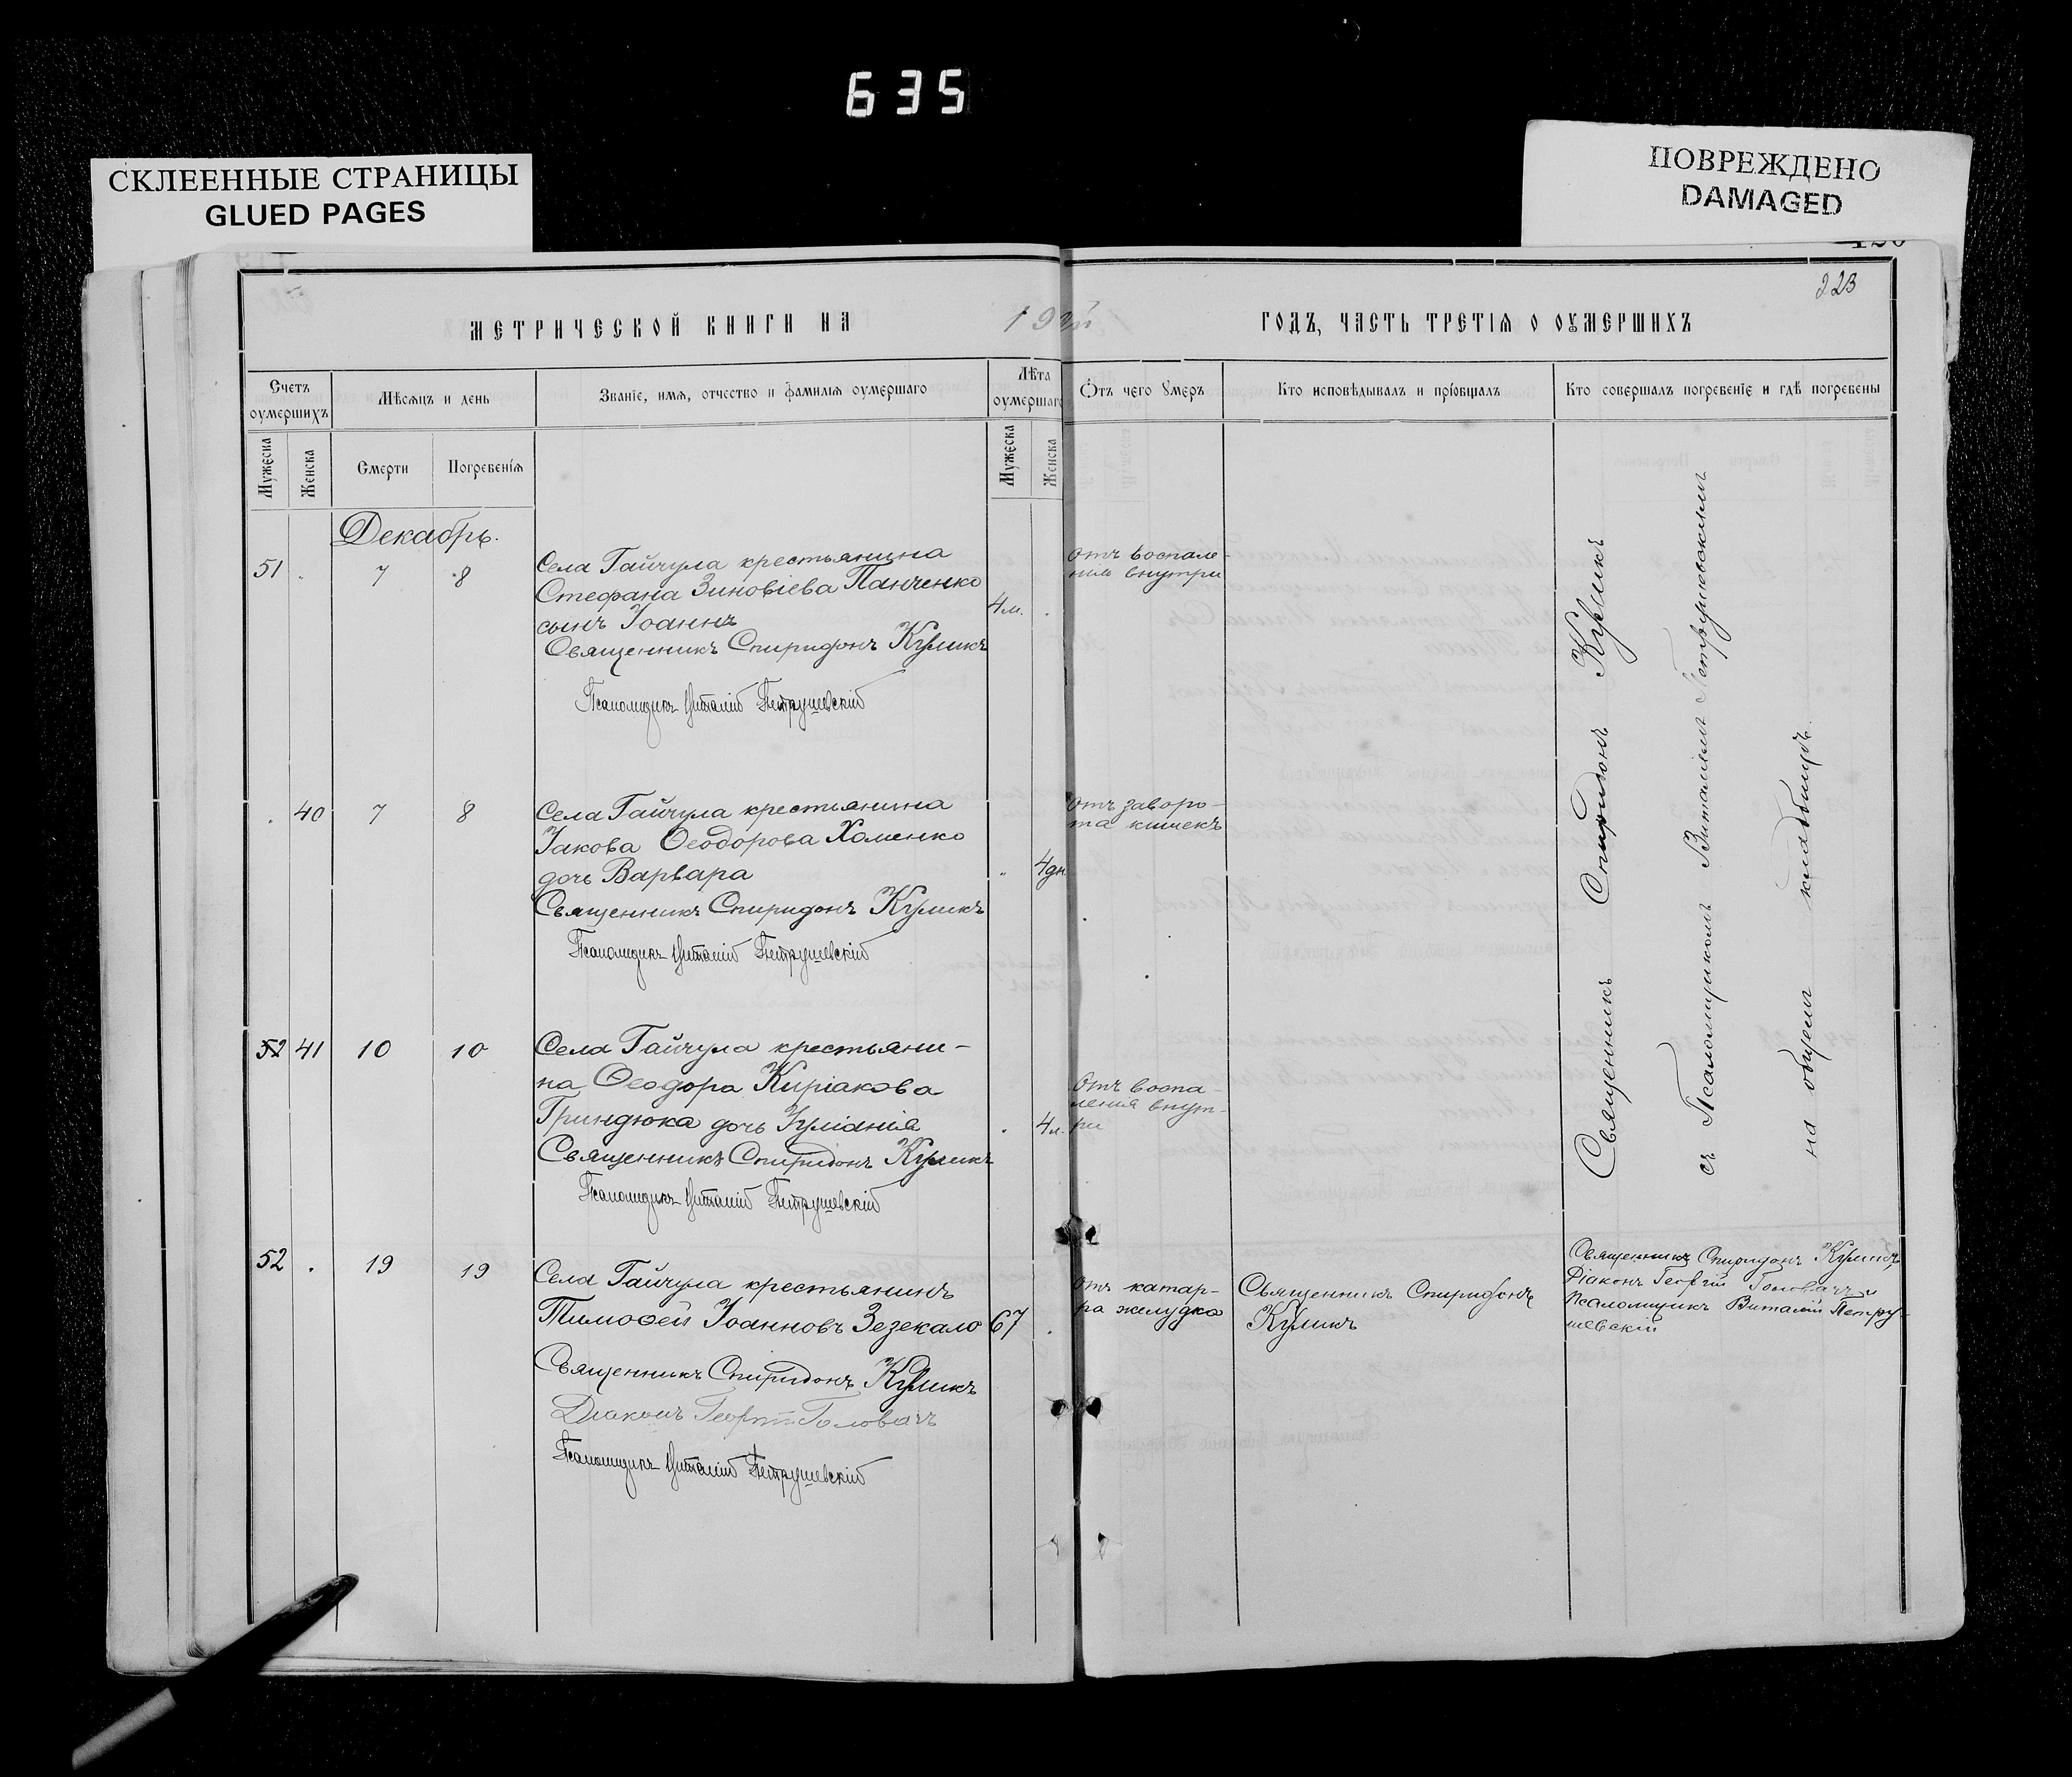 635
СКЛЕЕННЫЕ СТРАНИЦЫ
GLUED PAGES
ПОВРЕЖДЕНО
DAMAGED
223
МЕТРИЧЕСКОЙ КНИГИ НА
ГОДЪ, ЧАСТЬ ТРЕТІѦ О ОУМЕРШИХЪ
Счетъ оумершихъ
Мѣсѧцъ и день
Званіе, имѧ, отчество и фамиліѧ оумершаго
Лѣта оумершаго
Ѿтъ чего умеръ
Кто исповѣдывалъ и пріобщалъ
Кто совершалъ погребеніе и гдѣ погребены
Мужеска
Женска
Смерти
Погребеніѧ
Мужеска
Женска
Декабрь.
51 7 8
Села Гайчула крестьянина
Стефана Зиновіева Панченко
сынъ Іоаннъ
4 м.
отъ воспале-
нія внутри
Священникъ Спиридонъ Куликъ
Псаломщикъ Виталій Петрушевскій
40 7 8
Села Гайчула крестьянина
Іакова Ѳеодорова Хоменко
дочь Варвара
4 дн
отъ заворо-
та кишекъ
Священникъ Спиридонъ Куликъ
Псаломщикъ Виталій Петрушевскій
52 41 10 10
Села Гайчула крестьяни-
на Ѳеодора Киріакова
Гриндюка дочь Іуліанія
4 л.
Отъ воспа-
ленія внут-
ри
Священникъ Спиридонъ Куликъ
Псаломщикъ Виталій Петрушевскій
Священникъ Спиридонъ Куликъ
съ Псаломщикомъ Виталіемъ Петрушевскимъ
на общемъ кладбищѣ.
52 19 19
Села Гайчула крестьянинъ
Тимоѳей Іоанновъ Зезекало
67
отъ катар-
ра желудка
Священникъ Спиридонъ
Куликъ
Священникъ Спиридонъ Куликъ,
Діаконъ Георгій Головачъ и
Псаломщикъ Виталій Петру-
шевскій
Священникъ Спиридонъ Куликъ
Діаконъ Георгій Головачъ
Псаломщикъ Виталій Петрушевскій